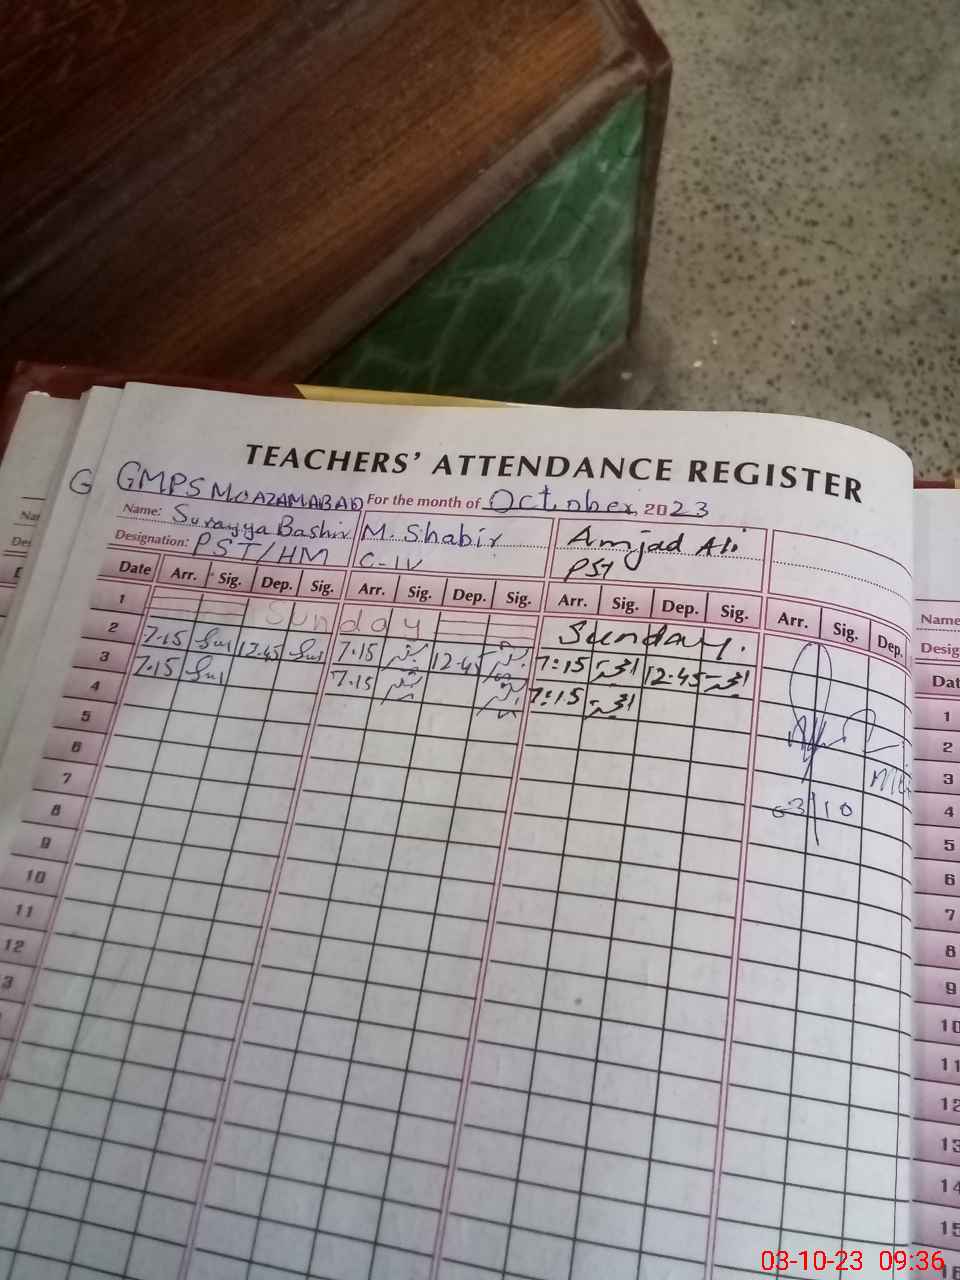 TEACHERS' ATTENDANCE REGISTER
GMPS MOAZAMABAD For the month of October, 2023
Name: Surayya Bashir M. Shabir Amjad Ali
Designation: PST/HM C-IV PST
Date Arr. Sig. Dep. Sig. Arr. Sig. Dep. Sig. Arr. Sig. Dep. Sig. Arr. Sig. Dep.
1 Sunday Sunday.
2 7.15 12.45 7.15 12-45 7:15 12.45
3 7.15 7.15 7:15
4
5
6
7
8
9
10
11
12
3
03/10
G
Name
Desig
Dat
1
2
3
4
5
6
7
8
9
10
11
12
13
14
15
16
03-10-23 09:36